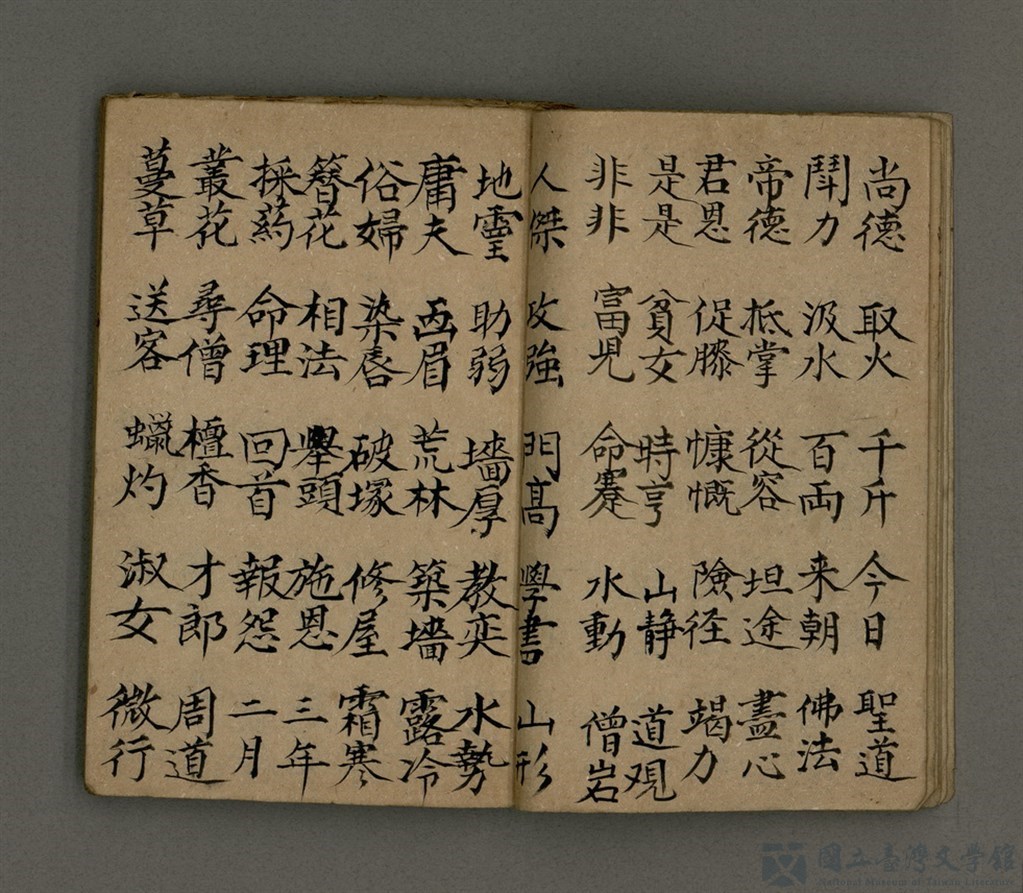 尚德 取火 千斤 今日 聖道
鬪力 汲水 百両 来朝 佛法
帝德 抵掌 從容 坦途 盡心
君恩 促膝 慷慨 險径 竭力
是是 貧女 時亨 山静 道观
非非 富児 命蹇 水動 僧岩
人傑 攻強 門高 學書 山形
地霊 助弱 墻厚 教奕 水勢
庸夫 画眉 荒林 築墻 露冷
俗婦 染唇 破塚 修屋 霜寒
簪花 相法 舉頭 施恩 三年
採药 命理 回首 報怨 二月
叢花 尋僧 檀香 才郎 周道
蔓草 送客 蠟灼 淑女 微行
國立臺灣文學館
National Museum of Taiwan Literature